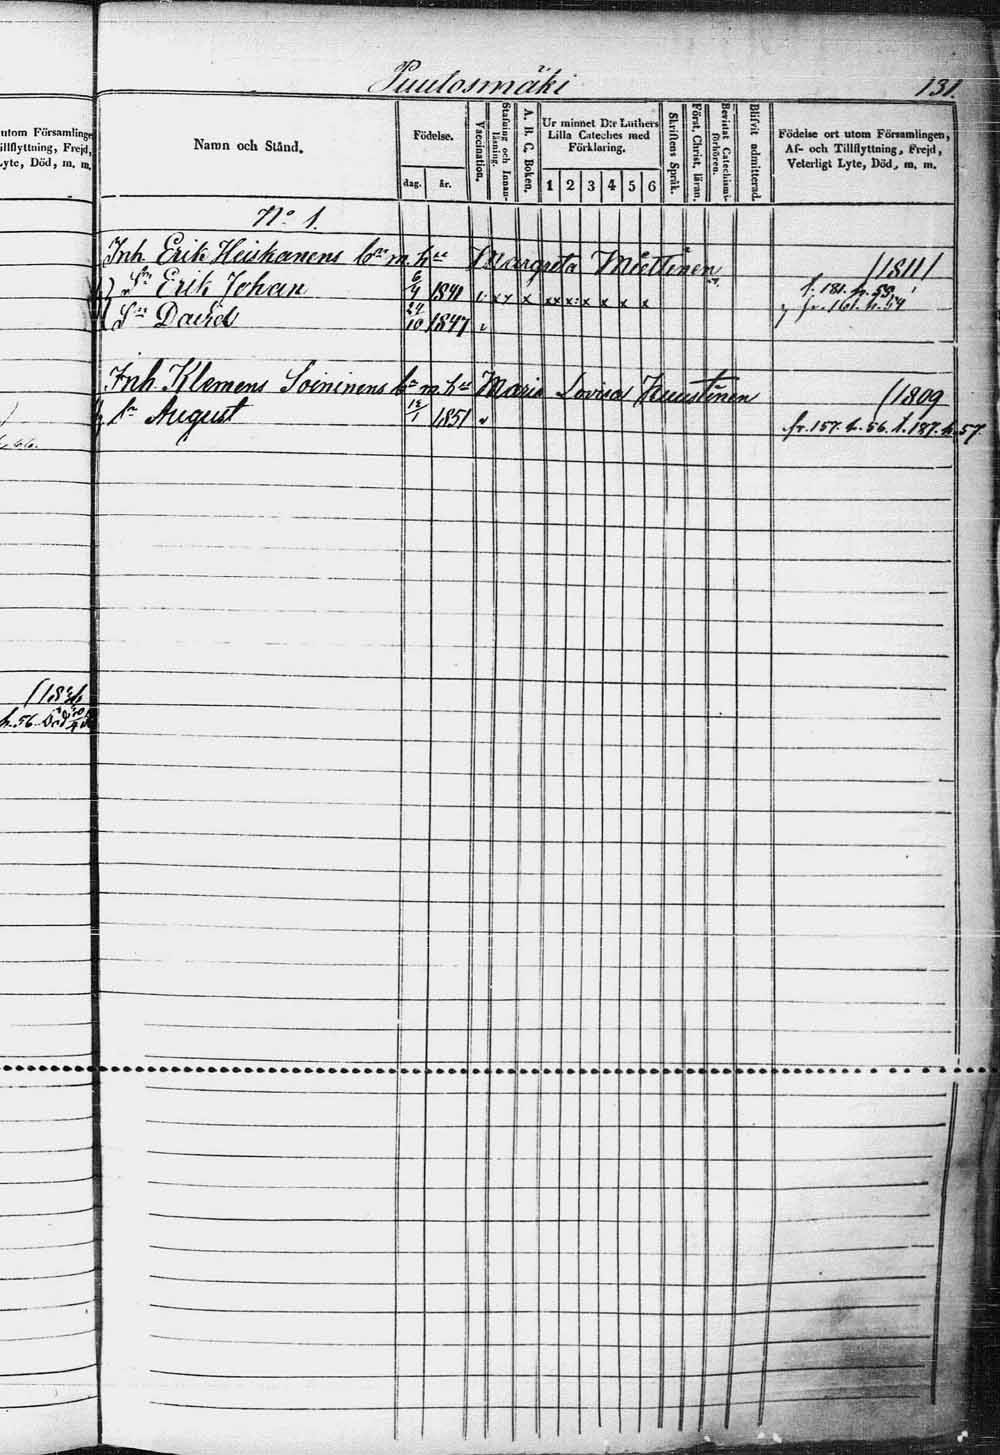 Puulosmäki 131.
utom Församlingen
Tillflyttning, Frejd,
Lyte, Död, m. m.
Namn och Stånd.
Födelse.
dag. år.
Vaccination.
Stafning och Innan-
läsning.
A. B. C. Boken.
Ur minnet D:r Luthers
Lilla Cateches med
Förklaring.
1 2 3 4 5 6
Skriftens Språk.
Först. Christ. läran.
Bevistat Catechismi-
förhören.
Blifvit admitterad.
Födelse ort utom Församlingen,
Af- och Tillflyttning, Frejd,
Veterligt Lyte, Död, m. m.
No 1.
Inh. Erik Heiskanens bn m. h. Margreta Möttinen /1811/
Sn Erik Johan 6/4 1841 x x x x x x x x x t. 181. h. 59.
Sn David 24/10 1847 fr. 161. h. 54
Inh. Klemens Soininens bn m. h. Maria Lovisa Kuustinen /1809
Sn August 12/1 1851 fr. 157. h. 56. t. 187. h. 57.
h. 56. Död